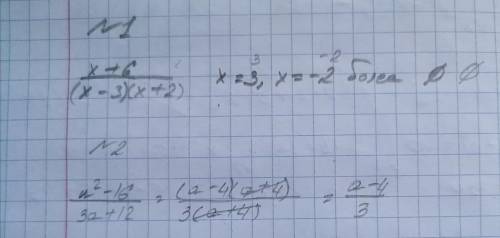 №1
x+6 / (x-3)(x+2) x=3, x=-2 болса ∅ ∅
3 -2
№2
a²-16 / 3a+12 = (a-4)(a+4) / 3(a+4) = a-4 / 3